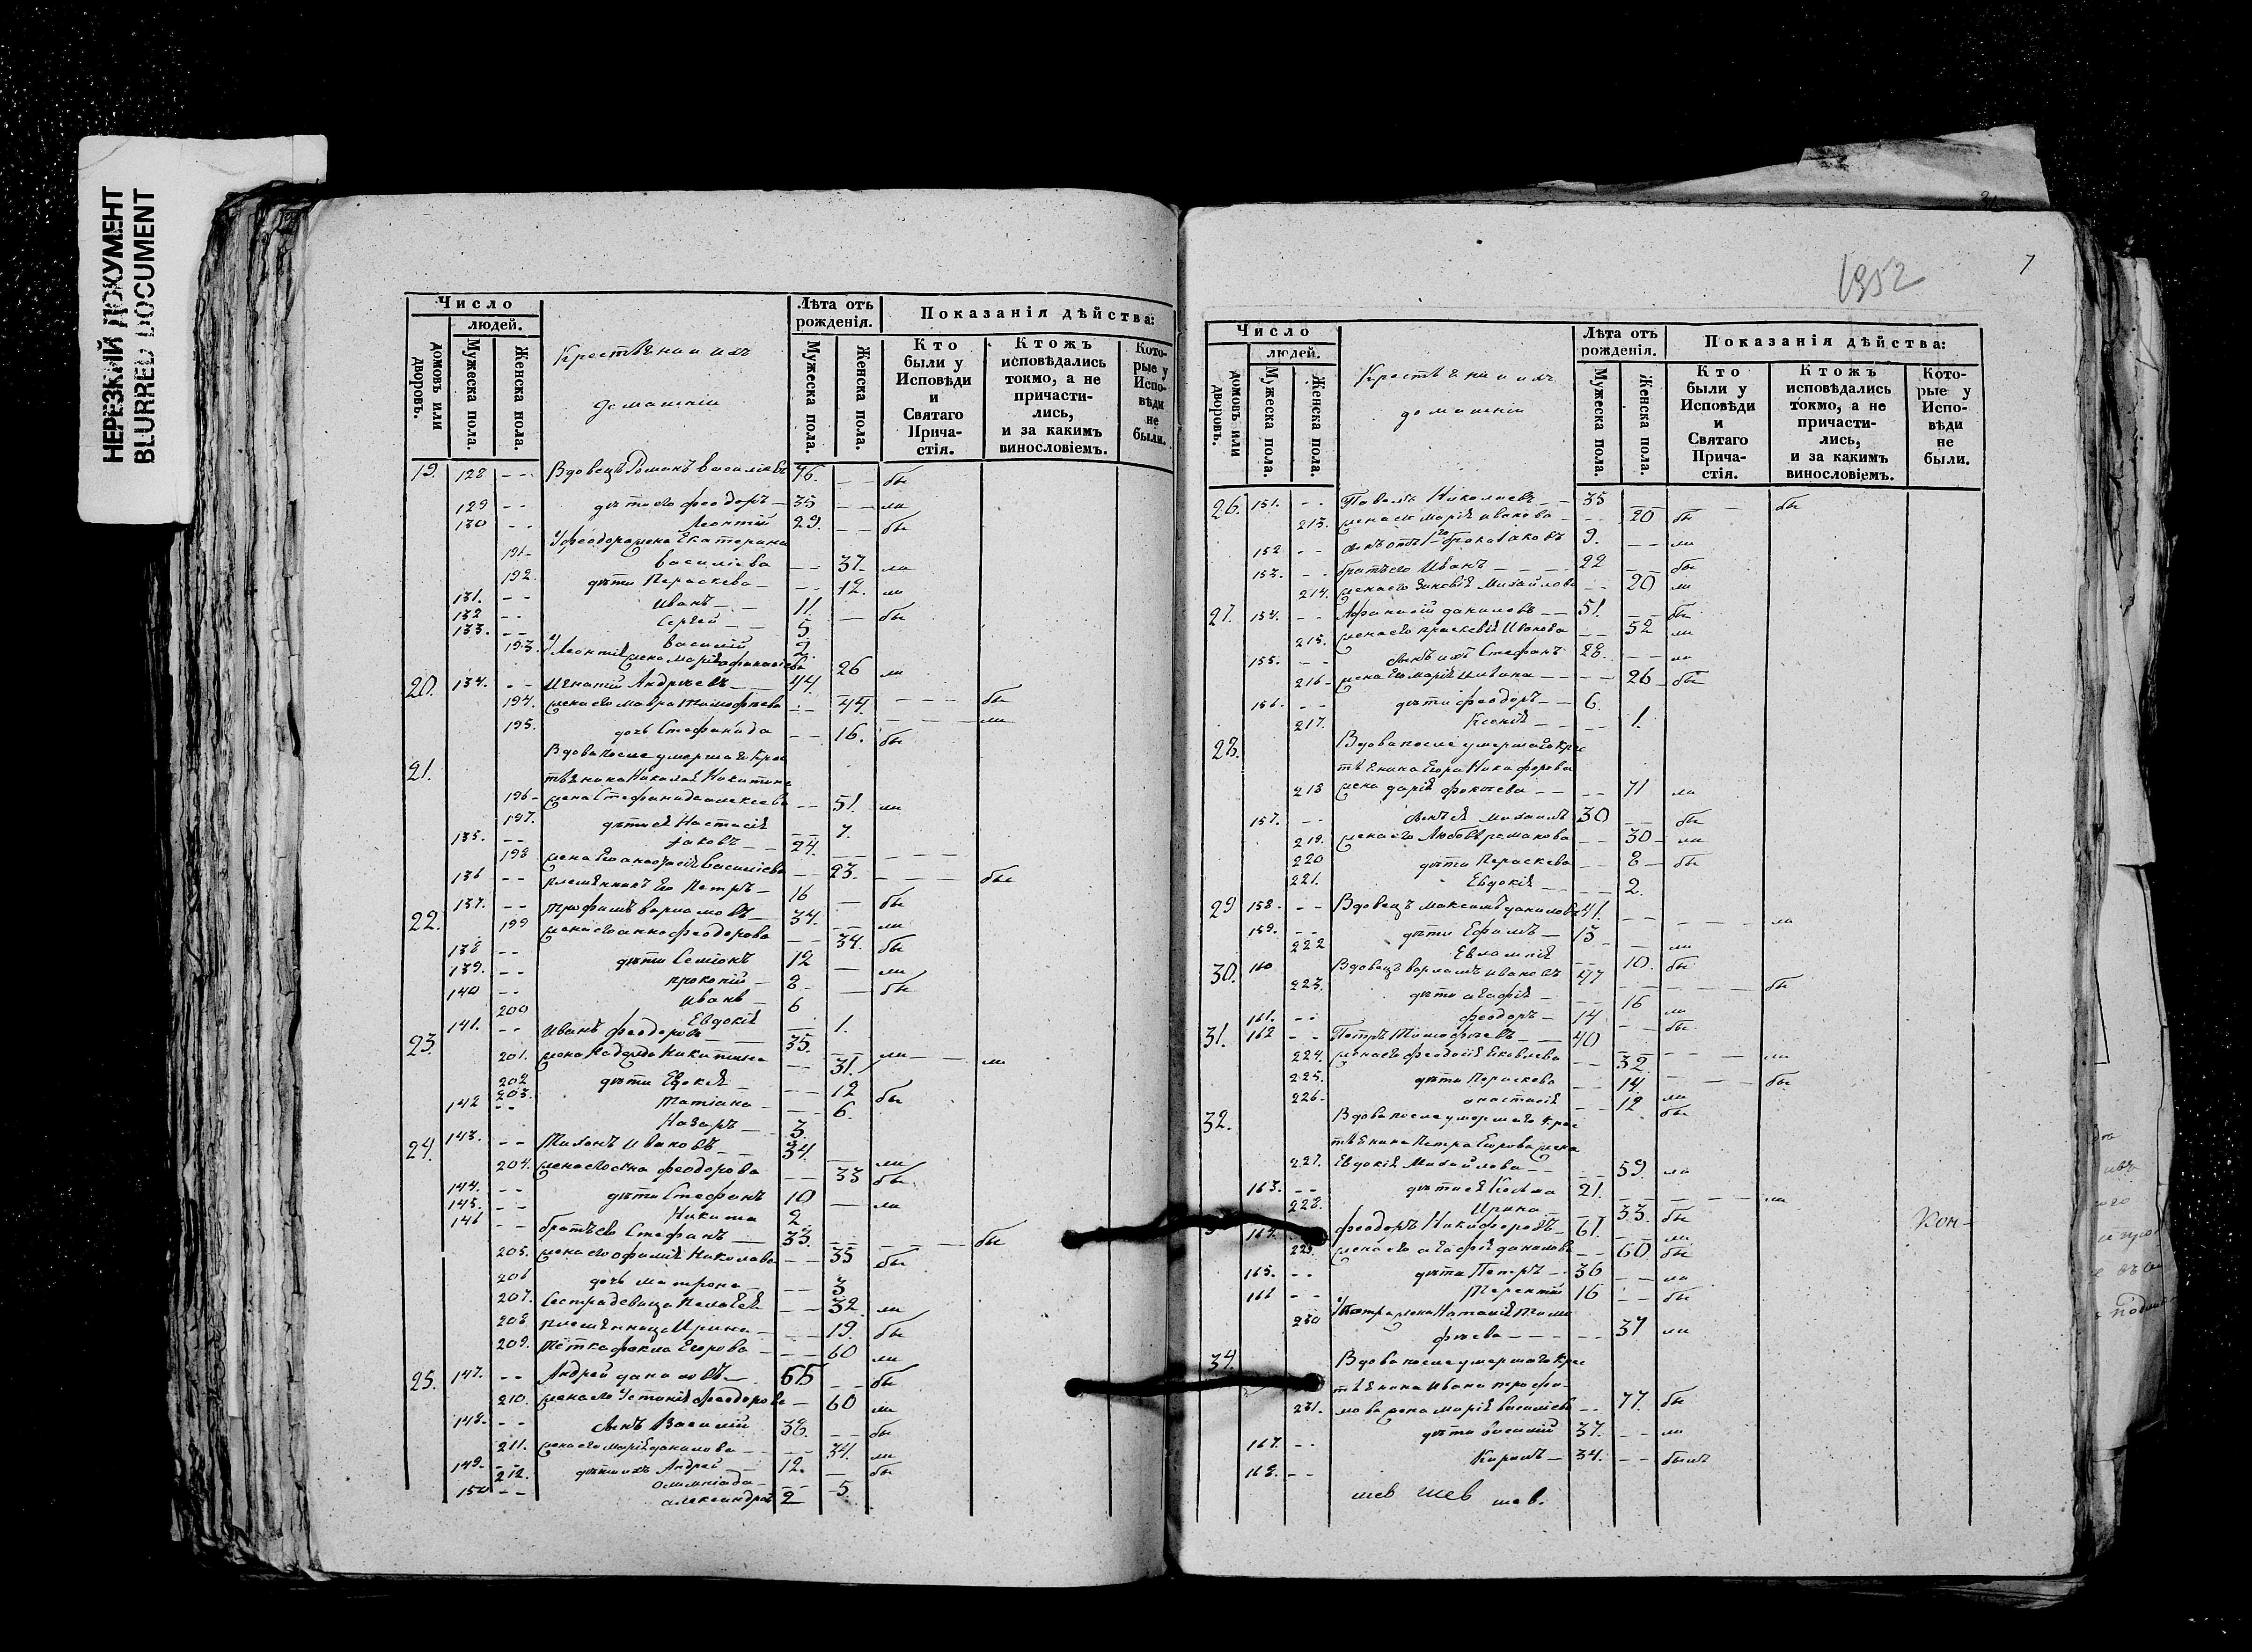 НЕРЕЗКИЙ ДОКУМЕНТ
BLURRED DOCUMENT
Число
людей.
домовъ или дворовъ.
Мужеска пола.
Женска пола.
Крестьяни и ихъ
домашніи
Лѣта отъ рожденія.
Мужеска пола.
Женска пола.
Показанія дѣйства:
Кто были у Исповѣди и Святаго Прича- стія.
Ктожъ исповѣдались токмо, а не причасти- лись, и за какимъ винословіемъ.
Кото- рые у Испо- вѣди не были.
19. 128 -- Вдовецъ Романъ Василіевъ 76. -- бы
129 -- дѣти его Феодоръ 35 -- ли
130 -- Леонтій 29. -- бы
У Феодора жена Екатерина
191- Василіева -- 37 ли
192. дѣти Пераскева -- 12. ли
131. -- Иванъ 11. -- бы
132 -- Сергей 5
133. -- Василій 2.
193. У Леонтія жена Марія Афанасіева 26 ли
20. 134. -- Игнатій Андреевъ 44.
194. жена его Мавра Тимофѣева -- 44. --- бы
195. дочь Стефанида -- 16. бы --- ли
21. Вдова после умершаго крес
тьянина Николая Никитина
196- жена Стефанида Алексеева -- 51. ли
197. дѣти ея Настасія -- 7.
135. -- Іаковъ 24.
198 жена его Анастасія Василіева -- 23. ---
136 -- племянникъ его Петръ 16 -- бы --- бы
22. 137. -- Трофимъ Варламовъ 34. -- ли
199 жена его Анна Феодорова -- 34. бы
138 -- дѣти Семіонъ 12 -- ли
139. -- Прокопій 8 -- бы
140 -- Иванъ 6
200 Евдокія -- 1.
23. 141. -- Иванъ Феодоровъ 35. -- ли
201. жена Надежда Никитина -- 31. ли
202 дѣти Евдокія -- 12 бы
203. Татіана -- 6.
142 -- Назаръ 3.
24. 143. -- Тихонъ Ивановъ 34. -- ли
204. жена его Анна Феодорова -- 33 бы
144. -- дѣти Стефанъ 10 -- ли
145. -- Никита 2.
146 -- братъ его Стефанъ 33. --- бы
205. жена его Офимія Николаева -- 35 бы
206 дочь Матрона -- 3
207. Сестра девица Пелагея -- 32 ли
208 племянница Ирина -- 19. бы
209. Тетка Фекла Егорова -- 60 ли
25. 147. -- Андрей Даниловъ 65 -- бы
210. жена его Устинія Феодорова -- 60 ли
148. -- сынъ Василій 38. -- бы
211. жена его Марія Данилова -- 34. ли
149. -- дѣти ихъ Андрей 12. -- бы
212. Олимпіада -- 5
150 -- Александръ 2
1352
7
Число
людей.
домовъ или дворовъ.
Мужеска пола.
Женска пола.
Крестьяни и ихъ
домашніи
Лѣта отъ рожденія.
Мужеска пола.
Женска пола.
Показанія дѣйства:
Кто были у Исповѣди и Святаго Прича- стія.
Ктожъ исповѣдались токмо, а не причасти- лись, и за какимъ винословіемъ.
Кото- рые у Испо- вѣди не были.
26. 151. -- Павелъ Николаевъ 35 --- бы
213. жена его Марія Иванова -- 20 бы
152 -- сынъ отъ 1го брака Іаковъ 9. -- ли
153. -- братъ его Иванъ 22 -- бы
214. жена его Зиновія Михайлова -- 20 ли
27. 154. -- Афанасій Даниловъ 51. -- бы
215. жена его Праскевія Иванова -- 52 ли
155. -- сынъ ихъ Стефанъ 28. -- ли
216- жена его Марія -- 26 бы
156. -- дѣти Феодоръ 6.
217. Ксенія -- 1.
28. Вдова после умершаго крес
тьянина Егора Никифорова
218 жена Дарія Фокеева -- 71 ли
157. -- сынъ ея Михаилъ 30 -- бы
219. жена его Любовь Романова -- 30 ли
220 дѣти Пераскева -- 8 бы
221. Евдокія -- 2.
29 158. -- Вдовецъ Максимъ Даниловъ 41. --- ли
159. -- дѣти Ефимъ 13 -- ли
222 Евлампія -- 10. бы
30. 160 Вдовецъ Варламъ Ивановъ 47 --- бы
223. дѣти Агафія -- 16 ли
161. -- Феодоръ 14 -- бы
31. 162 -- Петръ Тимофѣевъ 40 --- ли
224. жена его Феодосія Яковлева -- 32. --- бы
225. дѣти Пераскева -- 14 ли
226- Анастасія -- 12 бы
32. Вдова после умершаго крес
тьянина Петра Егорова жена
227. Евдокія Михайлова -- 59. ли
163. -- дѣти ея Косьма 21. --- ли
228. Ирина -- 33. бы
164. Феодоръ Никифоровъ 61. -- ли
229. жена его Агафія Данилова -- 60 бы
165. -- дѣти Петръ 36 -- ли
166 -- Терентій 16 -- бы
230 У Петра жена Наталія Тимо
фѣева -- 37 ли
34. Вдова после умершаго крес
тьянина Ивана Трофи-
231. мова жена Марія Василіева -- 77. бы
167. -- дѣти Василій 37. -- ли
168. -- Кирилъ 34. -- былъ